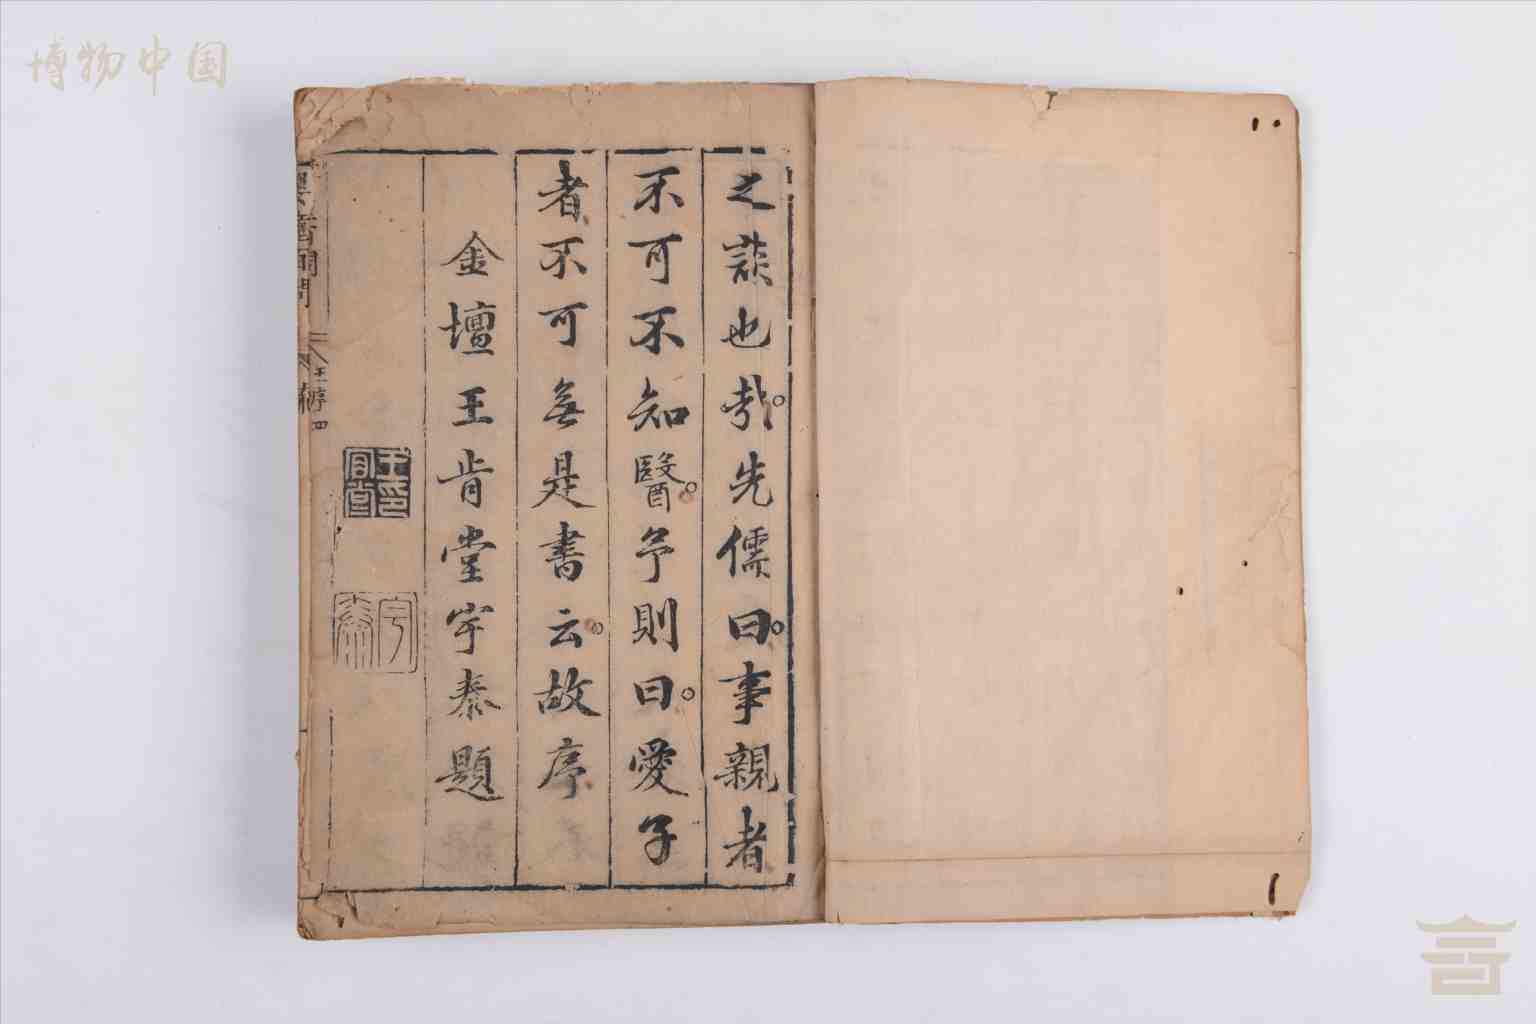 博物中国
之談也哉。先儒曰。事親者
不可不知醫。予則曰。愛子
者不可無是書云。故序
金壇王肯堂宇泰題
王肯堂印
宇泰
王序 四